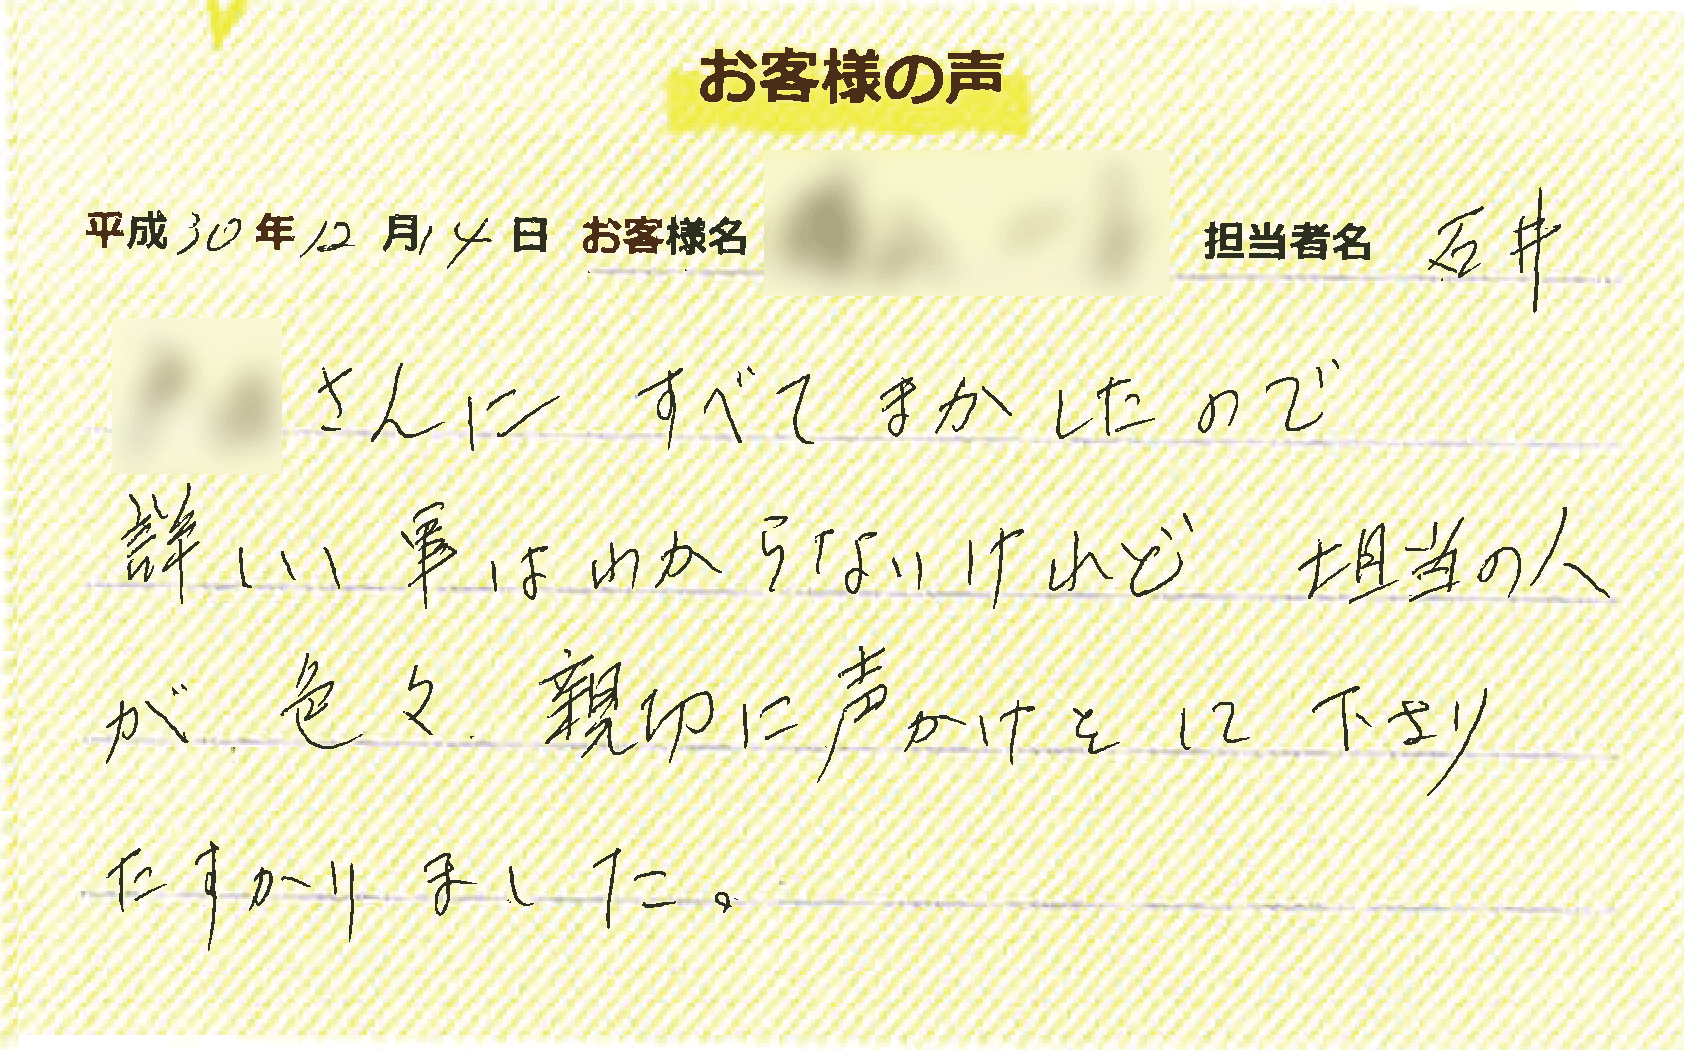 お客様の声
平成30年12月14日 お客様名 担当者名 石井
さんに すべて まかしたので
詳しい事はわからないけれど 担当の人
が 色々 親切に声かけをして下さり
たすかりました。